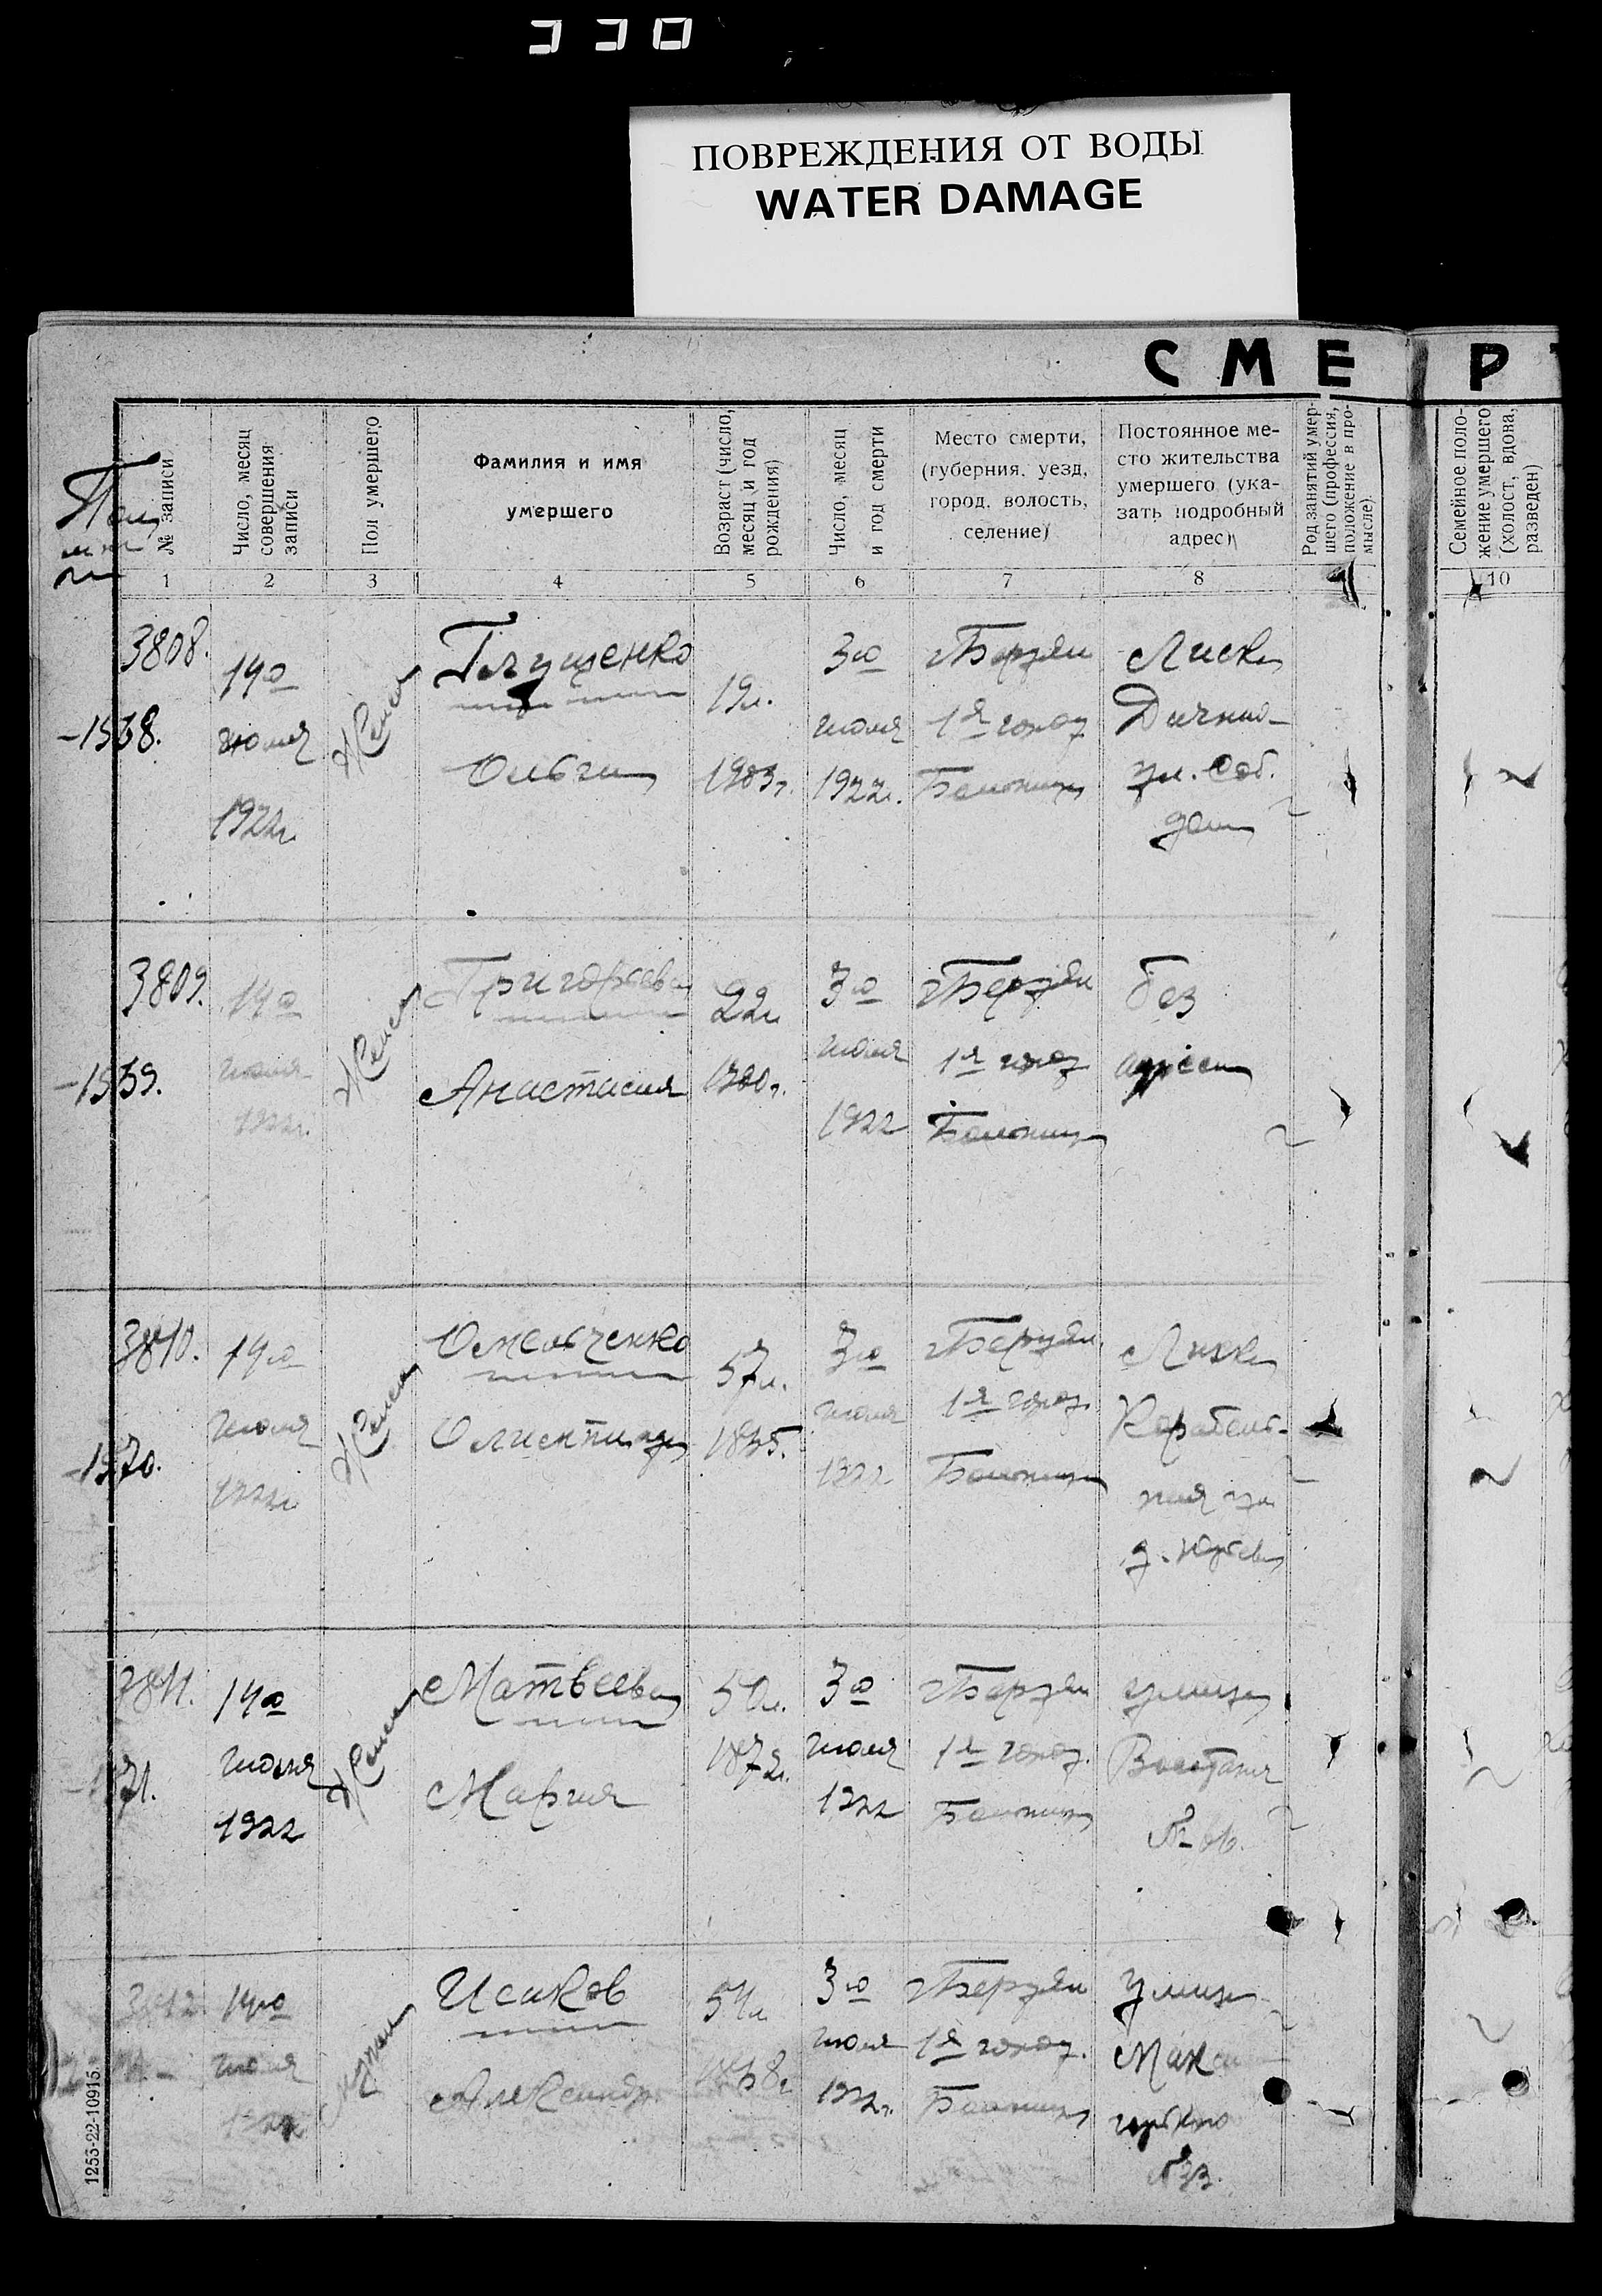 330
ПОВРЕЖДЕНИЯ ОТ ВОДЫ
WATER DAMAGE
СМЕ Р
№ записи
Число, месяц
совершения
записи
Пол умершего
Фамилия и имя
умершего
Возраст (число,
месяц и год
рождения)
Число, месяц
и год смерти
Место смерти,
(губерния, уезд,
город, волость,
селение)
Постоянное ме-
сто жительства
умершего (ука-
зать подробный
адрес)
Род занятий умер-
шего (профессия,
положение в про-
мысле)
Семейное поло-
жение умершего
(холост, вдова,
разведен)
1 2 3 4 5 6 7 8 10
3808.
-1568.
14го
июля
1922г.
Женск
Глущенко
Ольга
19л.
1903г.
3го
июля
1922г.
г Бердян
1я город
Больница
Лиски
ул. Соб.
дом
3809.
-1569.
14го
июля
1922г.
Женск
Григорьева
Анастасия
22г.
1900г.
3го
июля
1922
г Бердян
1я город
Больница
без
адреса
3810.
-1570.
14го
июля
1922г
Женск
Омельченко
57л.
3го
июля
1922
г Бердян
1я город.
Больница
Лиски
Корабель-
ная ул
3811.
71.
14го
июля
1922
Женск
Матвеева
Мария
50л.
1872г.
3го
июля
1922
г Бердян
1я город.
Больница
улица
Восстания
3812
14го
июля
1922
Исаков
Александр
54л
3го
июля
1922г.
г Бердян
1я город.
Больница
улица
1255-22-10915